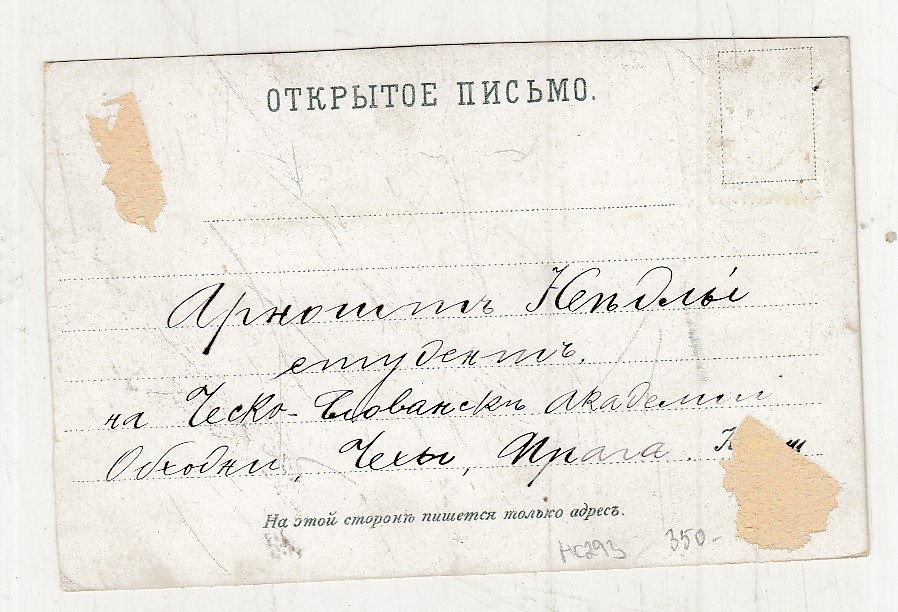 ОТКРЫТОЕ ПИСЬМО.
Арноштъ Неѣдлы́
студентъ,
на Ческо-Слованскѣ академіи
Обходни, Чехы, Прага.
На этой сторонѣ пишется только адресъ.
НС293 350-